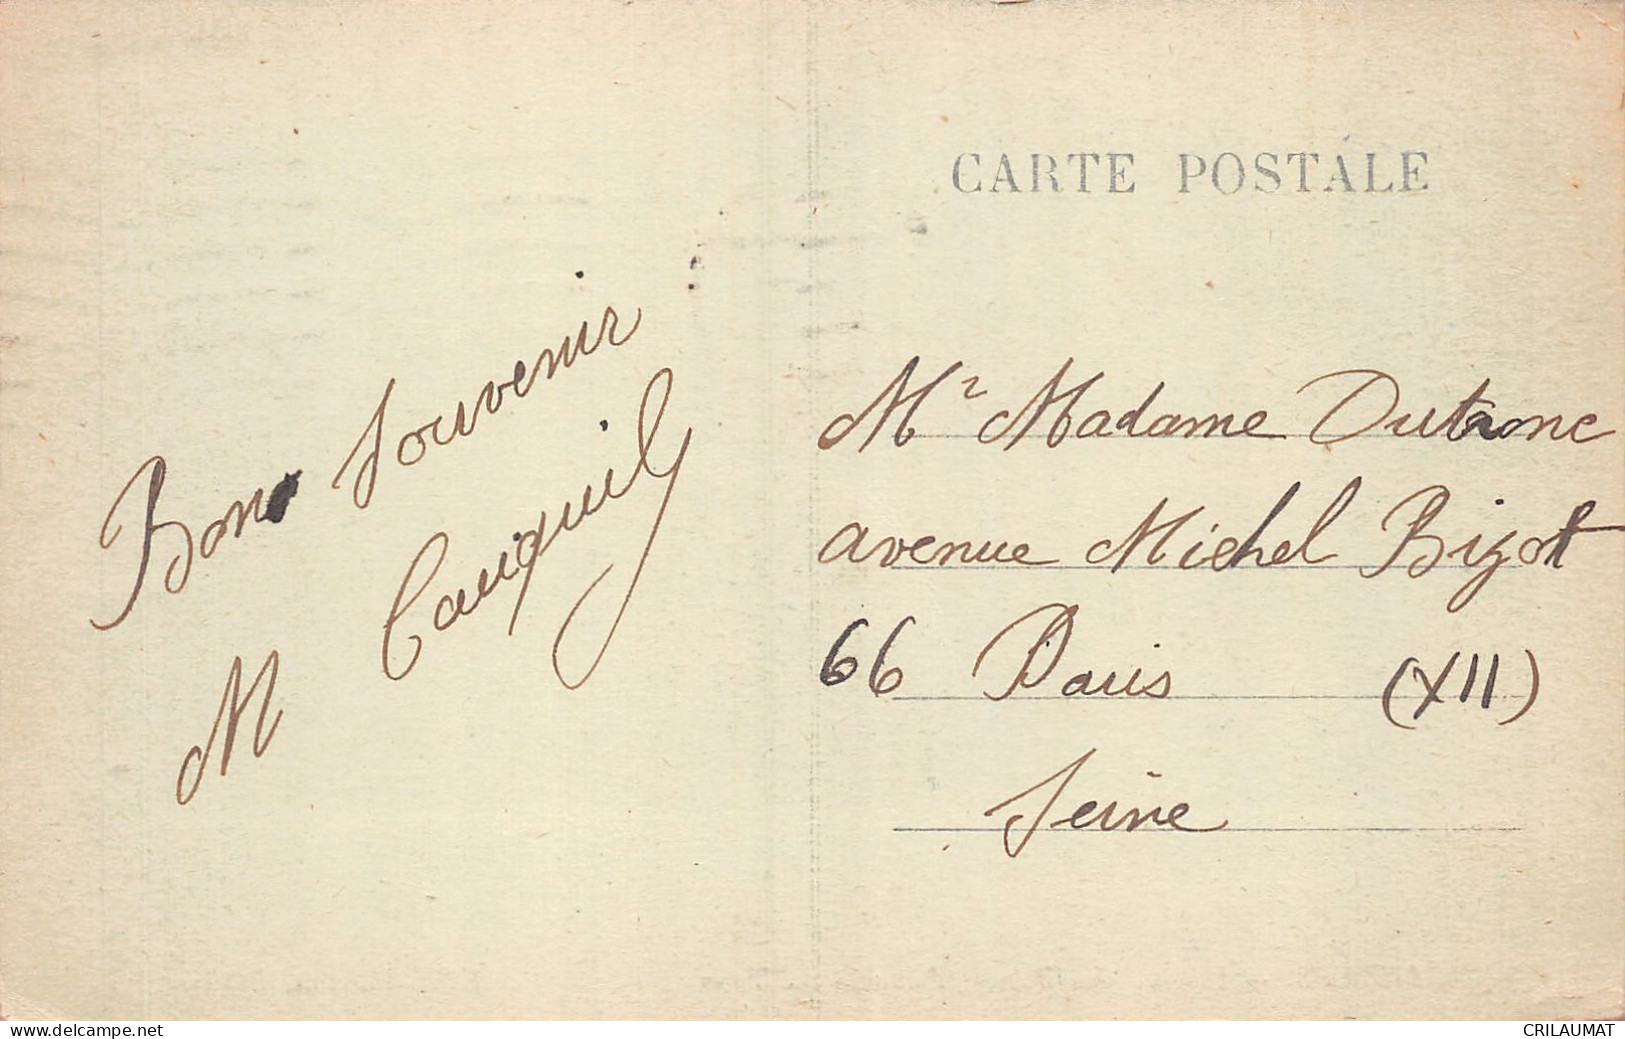 CARTE POSTALE
Bon Souvenir
M Cauquil
Mr Madame Dutrone
avenue Michel Bizot
66 Paris (XII)
Seine
www.delcampe.net
CRILAUMAT